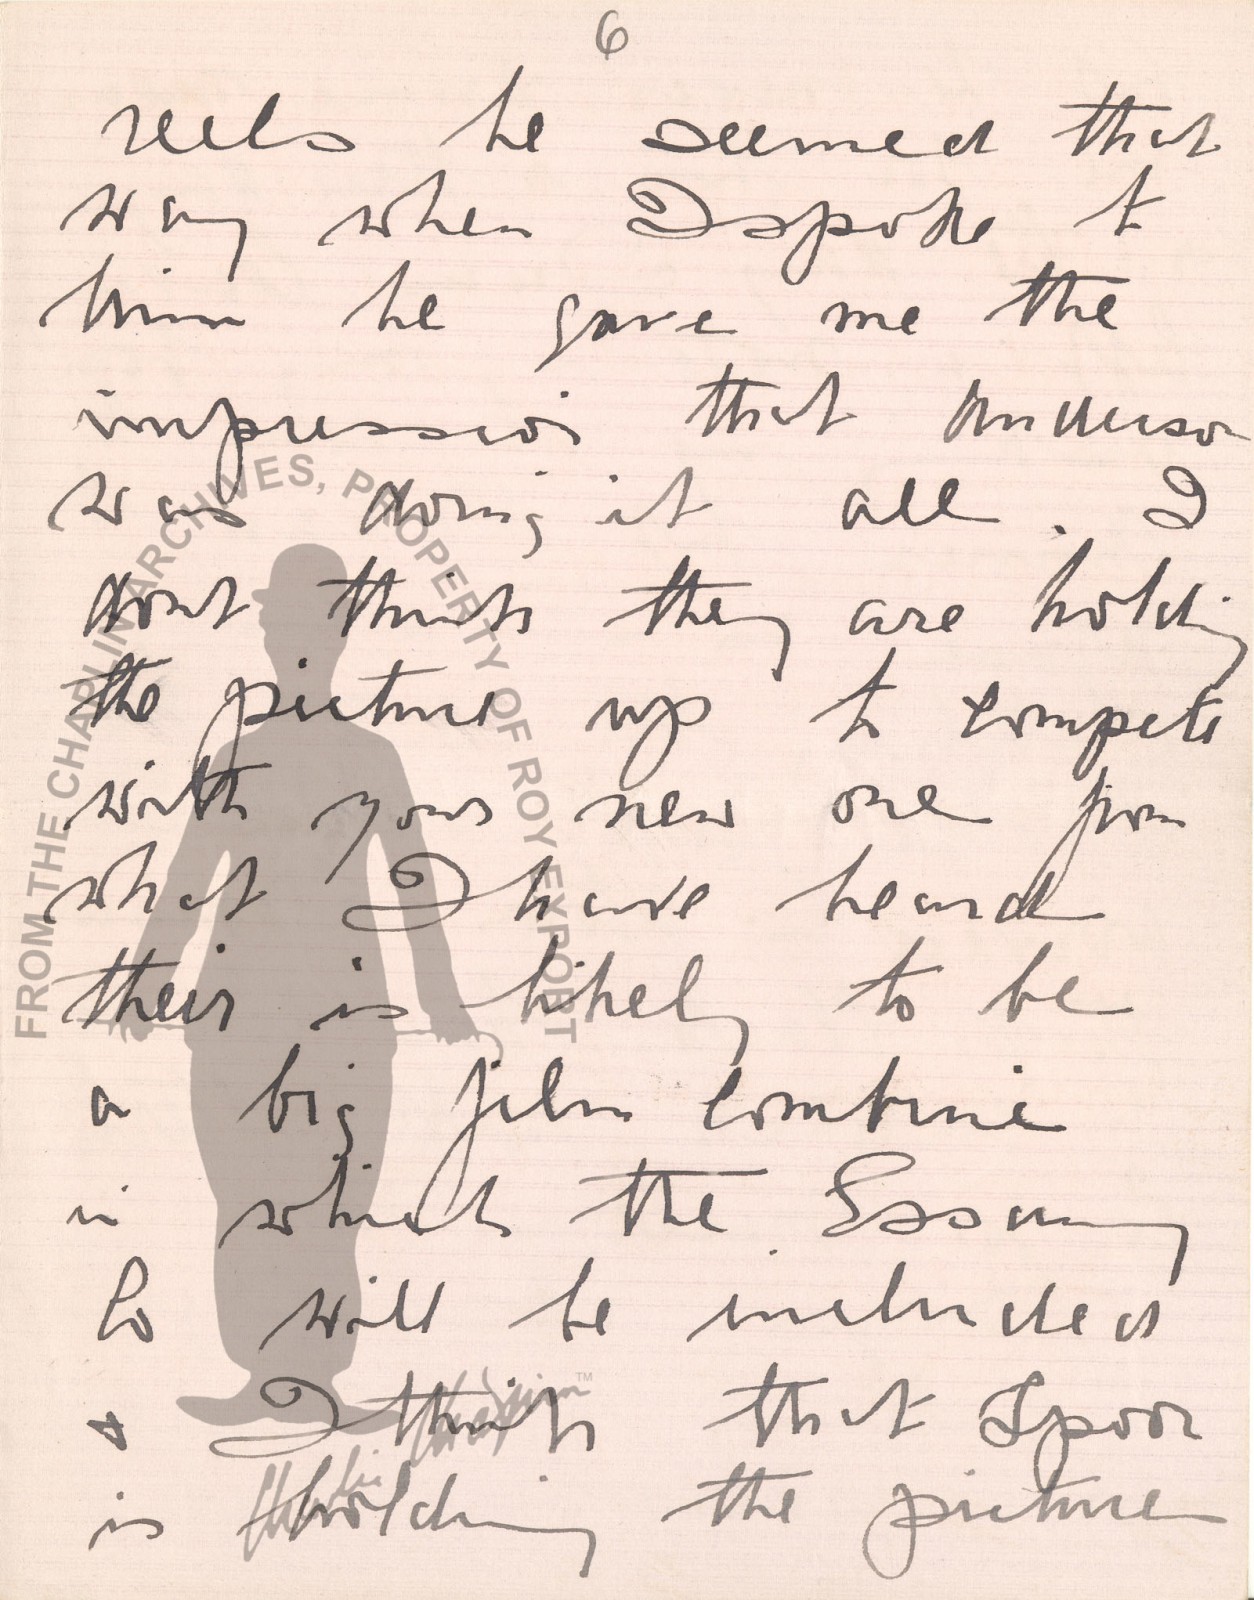 6
reels he seemed that
way when I spoke to
him he gave me the
impression that Anderson
was doing it all. I
dont think they are holding
the picture up to compete
with your new one from
what I have heard
their is likely to be
a big film combine
in which the Essanay
Co will be included
& I think that Spoor
is holding the picture
FROM THE CHAPLIN ARCHIVES, PROPERTY OF ROY EXPORT
Charlie Chaplin™